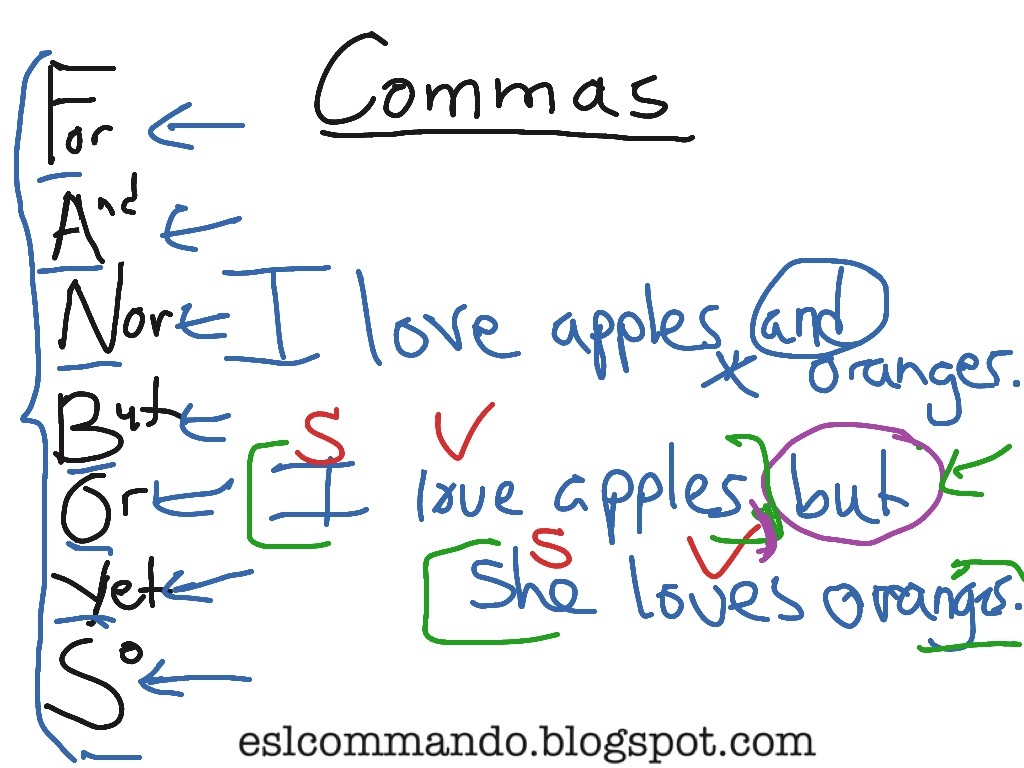 Commas
For
And
Nor
But
Or
Yet
So
I love apples and
oranges.
S V
I love apples, but
S V
She loves oranges.
eslcommando.blogspot.com